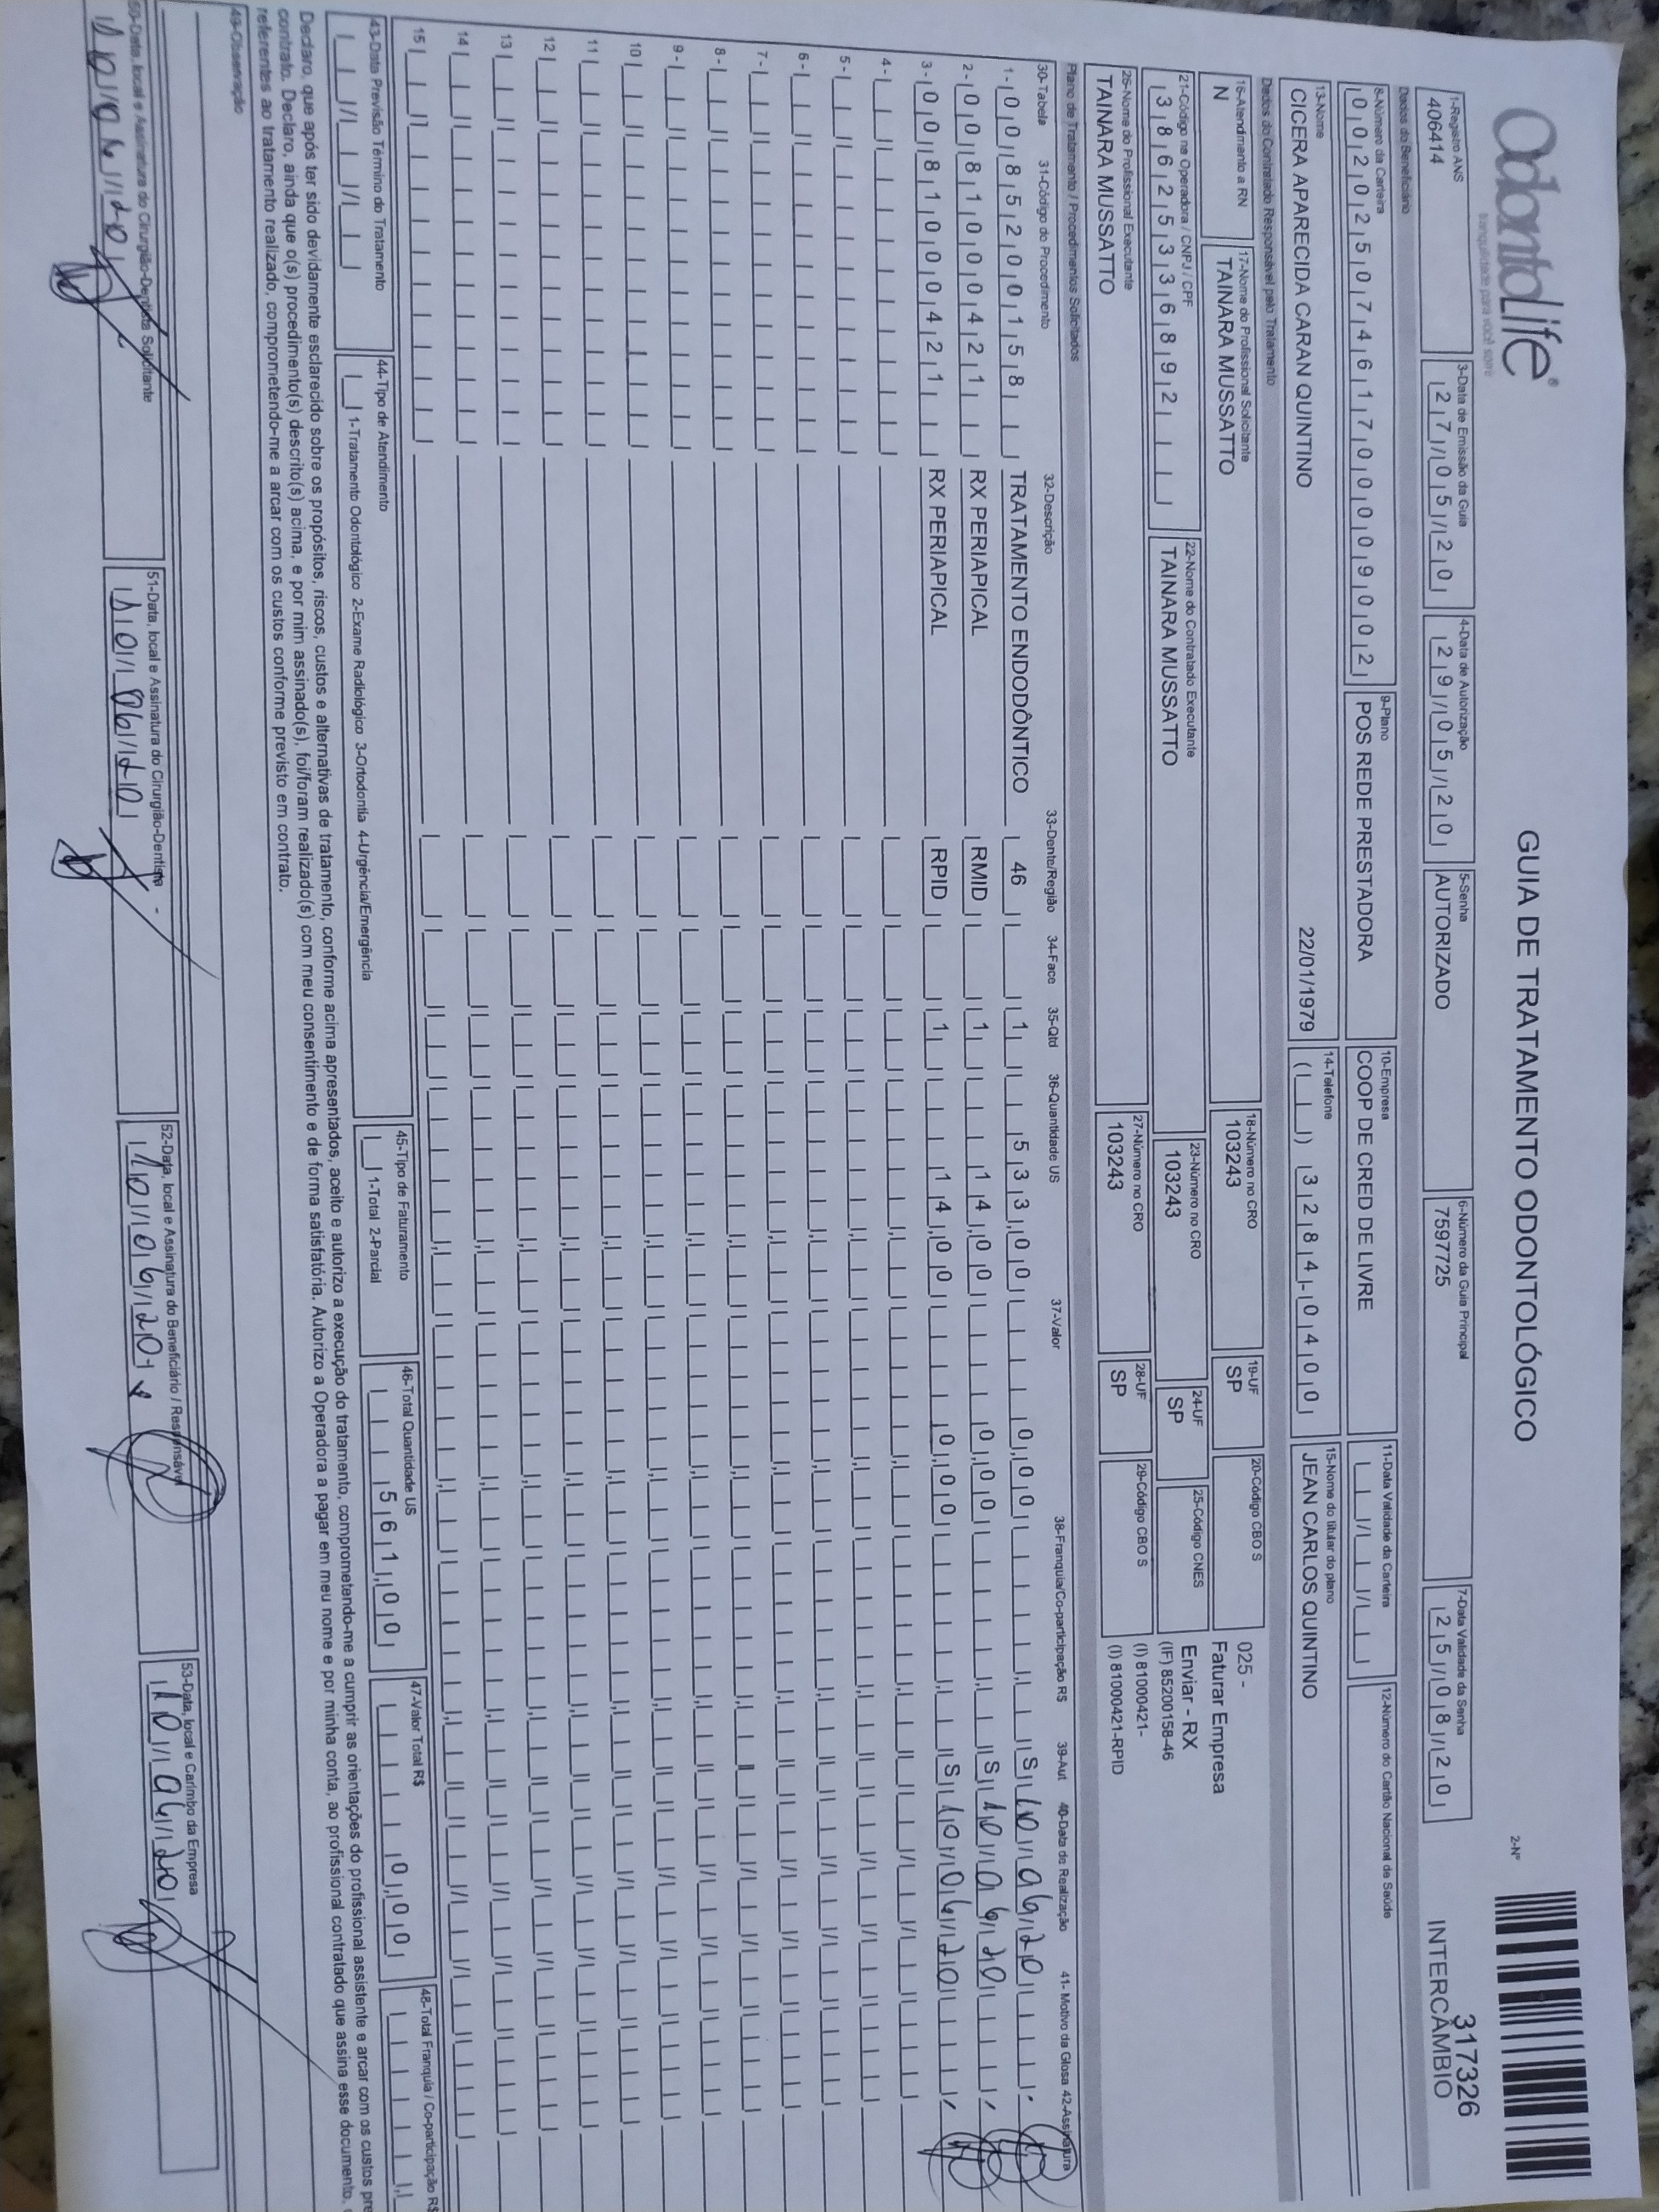 OdontoLife®
tranquilidade para você sorrir
GUIA DE TRATAMENTO ODONTOLÓGICO
2-Nº
317326
INTERCÂMBIO
1-Registro ANS
406414
3-Data de Emissão da Guia
27/05/20
4-Data de Autorização
29/05/20
5-Senha
AUTORIZADO
6-Número da Guia Principal
7597725
7-Data Validade da Senha
25/08/20
Dados do Beneficiário
8-Número da Carteira
00202507461700009002
9-Plano
POS REDE PRESTADORA
10-Empresa
COOP DE CRED DE LIVRE
11-Data Validade da Carteira
12-Número do Cartão Nacional de Saúde
13-Nome
CICERA APARECIDA CARAN QUINTINO 22/01/1979
14-Telefone
( ) 3284-0400
15-Nome do titular do plano
JEAN CARLOS QUINTINO
Dados do Contratado Responsável pelo Tratamento
16-Atendimento a RN
N
17-Nome do Profissional Solicitante
TAINARA MUSSATTO
18-Número no CRO
103243
19-UF
SP
20-Código CBO S
025 -
Faturar Empresa
21-Código na Operadora / CNPJ / CPF
38625336892
22-Nome do Contratado Executante
TAINARA MUSSATTO
23-Número no CRO
103243
24-UF
SP
25-Código CNES
Enviar - RX
(IF) 85200158-46
(I) 81000421-
(I) 81000421-RPID
26-Nome do Profissional Executante
TAINARA MUSSATTO
27-Número no CRO
103243
28-UF
SP
29-Código CBO S
Plano de Tratamento / Procedimentos Solicitados
30-Tabela 31-Código do Procedimento 32-Descrição 33-Dente/Região 34-Face 35-Qtd 36-Quantidade US 37-Valor 38-Franquia/Co-participação R$ 39-Aut 40-Data de Realização 41- Motivo da Glosa 42-Assinatura
1 - 00 85200158 TRATAMENTO ENDODÔNTICO 46 1 533,00 0,00 S 10/06/20
2 - 00 81000421 RX PERIAPICAL RMID 1 14,00 0,00 S 10/06/20
3 - 00 81000421 RX PERIAPICAL RPID 1 14,00 0,00 S 10/06/20
4 -
5 -
6 -
7 -
8 -
9 -
10
11
12
13
14
15
43-Data Previsão Término do Tratamento
44-Tipo de Atendimento
1-Tratamento Odontológico 2-Exame Radiológico 3-Ortodontia 4-Urgência/Emergência
45-Tipo de Faturamento
1-Total 2-Parcial
46-Total Quantidade US
561,00
47-Valor Total R$
0,00
48-Total Franquia / Co-participação R$
Declaro, que após ter sido devidamente esclarecido sobre os propósitos, riscos, custos e alternativas de tratamento, conforme acima apresentados, aceito e autorizo a execução do tratamento, comprometendo-me a cumprir as orientações do profissional assistente e arcar com os custos pre
contrato. Declaro, ainda que o(s) procedimento(s) descrito(s) acima, e por mim assinado(s), foi/foram realizado(s) com meu consentimento e de forma satisfatória. Autorizo a Operadora a pagar em meu nome e por minha conta, ao profissional contratado que assina esse documento,
referentes ao tratamento realizado, comprometendo-me a arcar com os custos conforme previsto em contrato.
49-Observação
50-Data, local e Assinatura do Cirurgião-Dentista Solicitante
10/06/20
51-Data, local e Assinatura do Cirurgião-Dentista -
10/06/20
52-Data, local e Assinatura do Beneficiário / Responsável
10/06/20
53-Data, local e Carimbo da Empresa
10/06/20